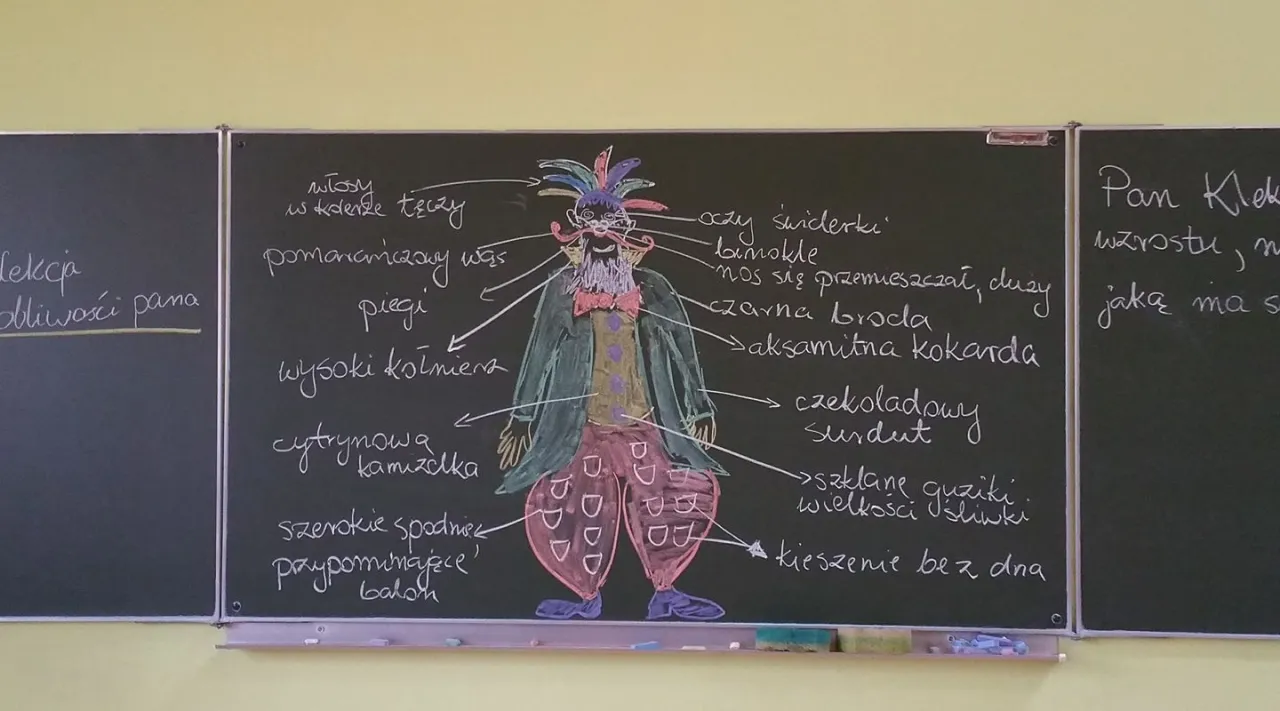 lekcja
obliwości pana
włosy
w kolorze tęczy
pomarańczowy wąs
piegi
wysoki kołnierz
cytrynowa
kamizelka
szerokie spodnie
przypominające
balon
oczy świderki
binokle
nos się przemieszczał, duży
czarna broda
aksamitna kokarda
czekoladowy
surdut
szklane guziki
wielkości śliwki
kieszenie bez dna
Pan Klek
wzrostu,
jaką ma s